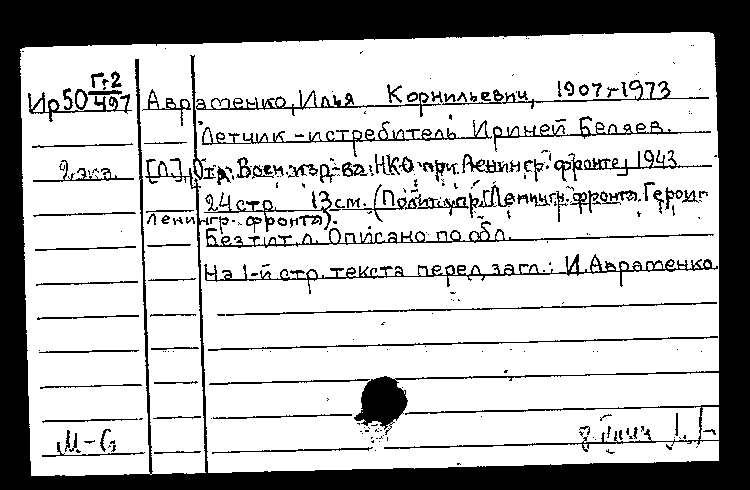 Ир50 Гг2/497 Авраменко, Илья Корнильевич, 1907-1973
Летчик-истребитель Ириней Беляев.
2 экз. [Л.], Отд. Воен. изд-ва НКО при Ленингр. фронте, 1943
24 стр. 13 см. (Полит. упр. Ленингр. фронта. Герои
Ленингр. фронта).
Без тит. л. Описано по обл.
На 1-й стр. текста перед загл.: И. Авраменко.